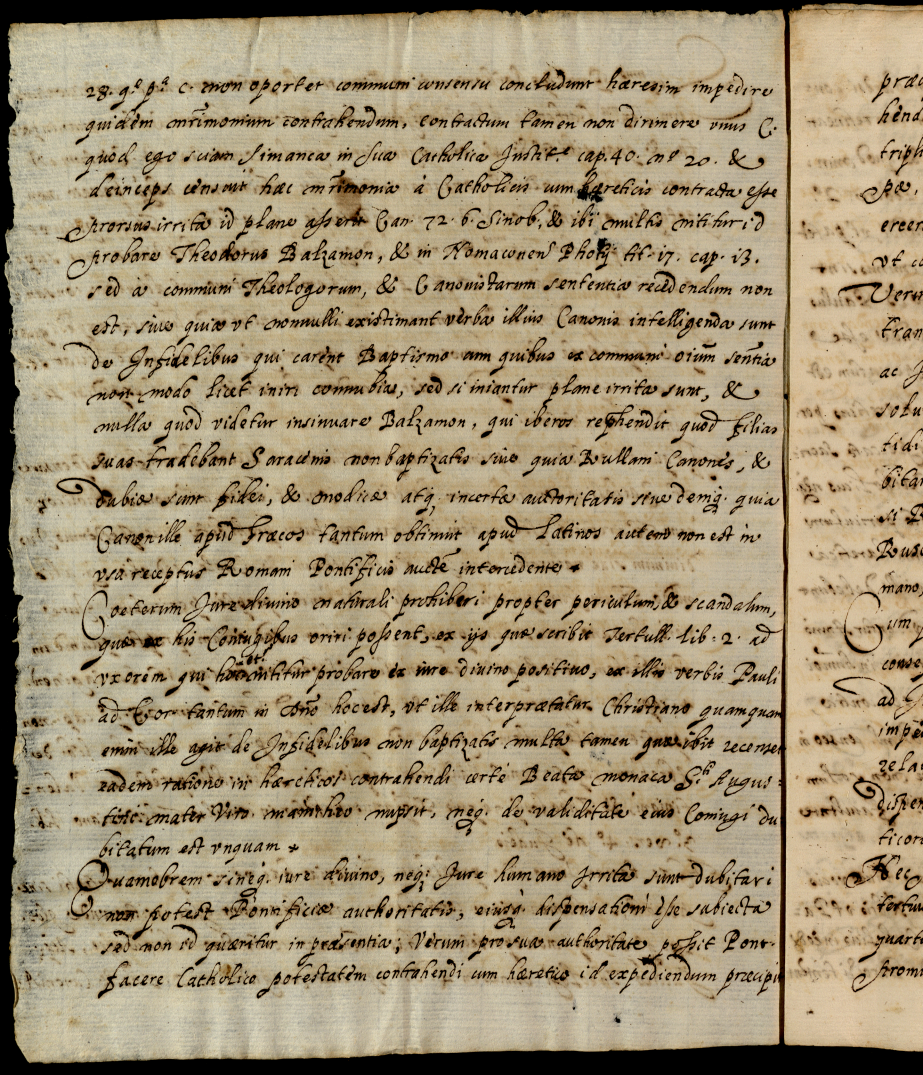 28. q.ª p.ª c. non oportet communi consensu concludunt hæresim impedire
quidem mr̃imonium contrahendum, contractum tamen non dirimere unus C.
quod ego sciam Simanca in sua Catholica Instit.e cap. 40. nº 20. &
deinceps censuit hæc mr̃imonia à Catholicis cum hæreticis contracta esse
prorsus irrita id plane asserit Can. 72. 6. Sinob, & ibi multis nititur id
probare Theodorus Balzamon, & in Nomaconen Photij tit. 17. cap. 13.
sed a communi Theologorum, & Canonistarum sententia recedendum non
est, sive quia vt nonnulli existimant verba illius Canonis intelligenda sunt
de Infidelibus qui carent Baptismo cum quibus ex communi oium̃ sentĩa
non modo licet iniri connubia, sed si iniantur plane irrita sunt, &
nulla quod videtur insinuare Balzamon, qui iberos rep̃hendit quod filias
suas tradebant Saracenis non baptizatis sive quia Rullani Canones, &
dubiæ sunt fidei, & modicæ atq; incertæ auctoritatis seu deniq. quia
Canon ille apud Græcos tantum obtinuit apud Latinos autem non est in
vsu receptus Romani Pontificis aucte intercedente
Coeterum Jure divino naturali prohiberi propter periculum, & scandalum,
quæ ex his Coniugibus oriri possent, ex ijs quæ scribit Tertull. lib. 2. ad
vxorem qui hoc et nititur probare ex iure divino positivo, ex illis verbis Pauli
ad Cor tantum in Dño hoc est, vt ille interprætatur Christiano quamquam
enim ille agit de Infidelibus non baptizatis multa tamen quæ ibit recenset
eadem ratione in hæreticos contrahendi certe Beata monaca S.ti Augus=
tini mater Viro manicheo nupsit, neq. de validitate eius Coniugi du
bitatum est vnquam
Quamobrem si neq. iure divino, neq; Jure humano Irrita sunt dubitari
non potest Pontificiæ authoritatis, eiusq. dispensationi esse subiecta
sed non id quæritur in præsentia; Verum pro sua authoritate possit Pont.
facere Catholico potestatem contrahendi cum hæretico id expediendum præcipu